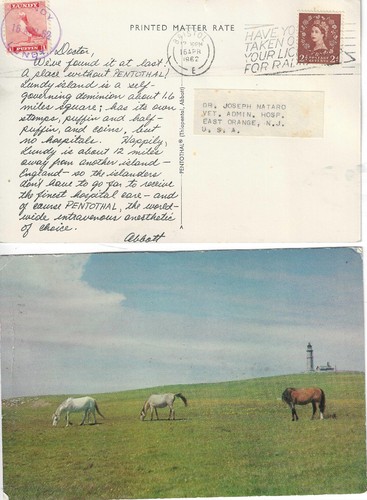 LUNDY
1
PUFFIN
PRINTED MATTER RATE
BRISTOL
16 APR
1962
E
HAVE YOU
TAKEN O
YOUR LIC
FOR RAD
Doctor,
We've found it at last!
A place without PENTOTHAL!
Lundy island is a self-
governing dominion about 1.6
miles square; has its own
stamps, puffin and half-
puffin, and coins, but
no hospitals. Happily,
Lundy is about 12 miles
away from another island—
England—so the islanders
don't have to go far to receive
the finest hospital care—and
of course PENTOTHAL, the world-
wide intravenous anesthetic
of choice.
Abbott
PENTOTHAL® (Thiopental, Abbott)
A
DR. JOSEPH NATARO
VET. ADMIN. HOSP.
EAST ORANGE, N.J.
U. S. A.